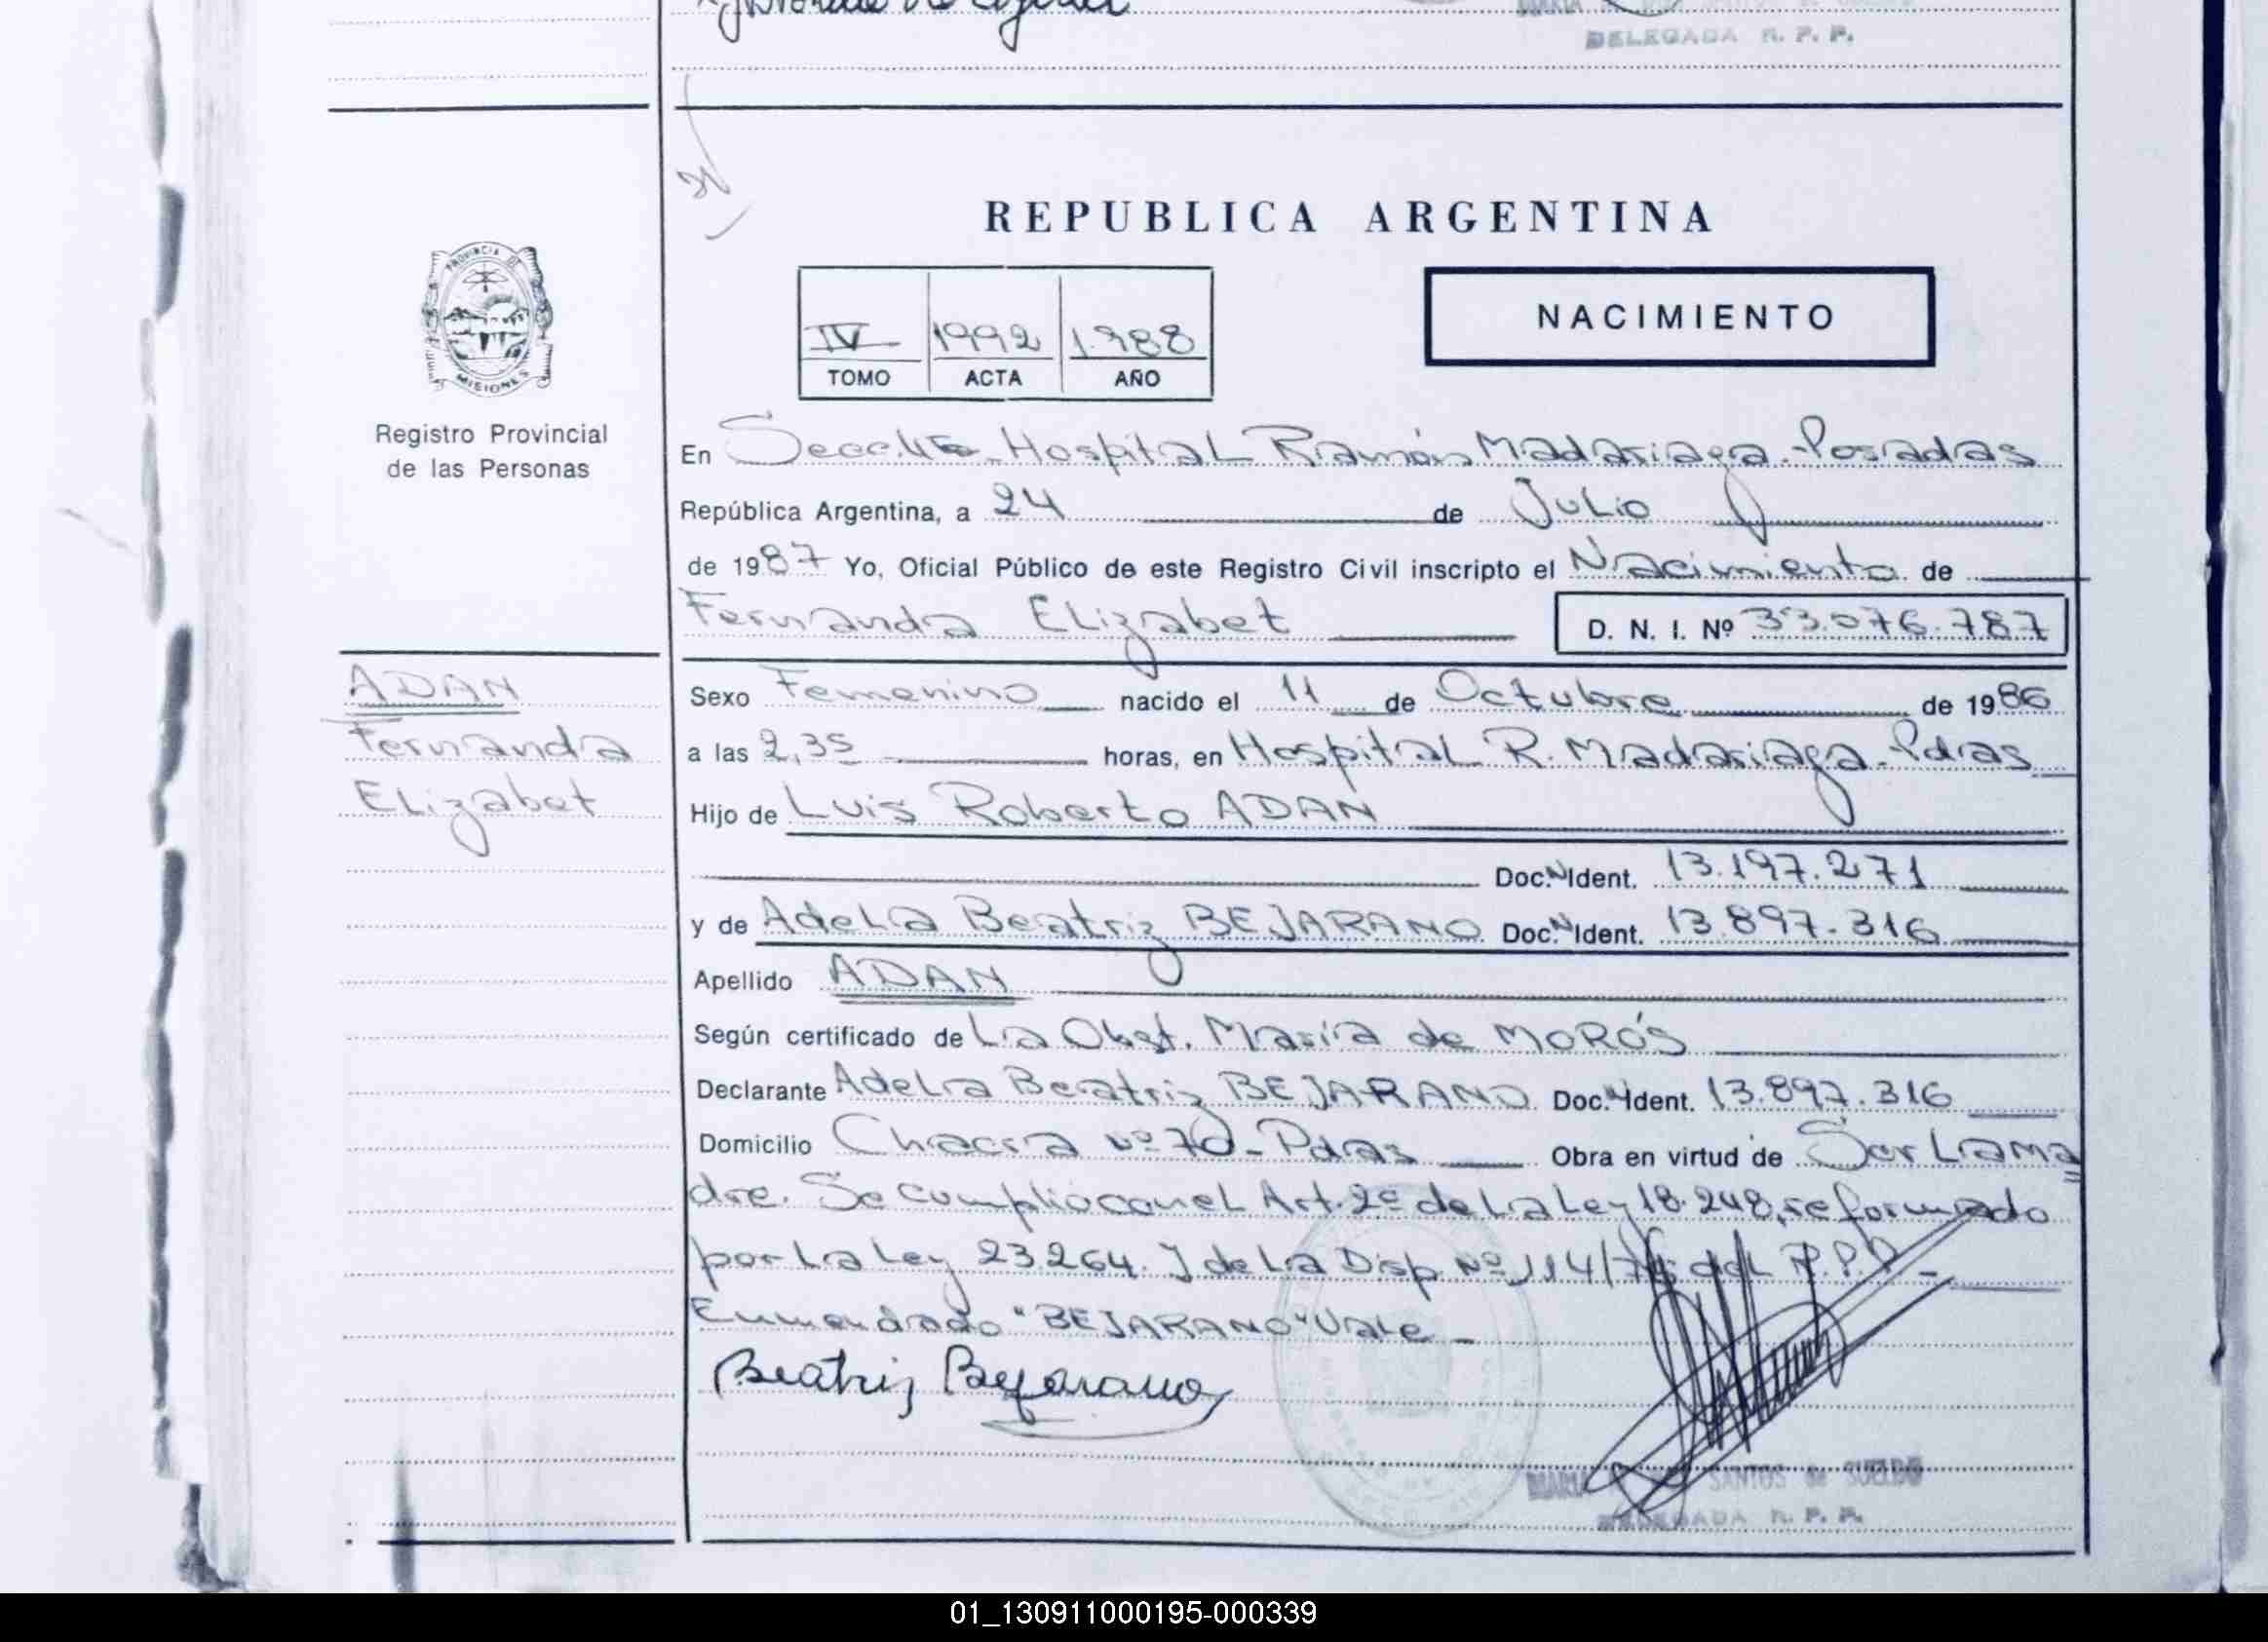 DELEGADA R. P. P.
REPUBLICA ARGENTINA
IV 1992 1.988
TOMO ACTA AÑO
NACIMIENTO
PROVINCIA DE
MISIONES
Registro Provincial
de las Personas
En Secc. 4ta Hospital Ramón Madariaga - Posadas
República Argentina, a 24 de Julio
de 1987 Yo, Oficial Público de este Registro Civil inscripto el Nacimiento de
Fernanda Elizabet D. N. I. Nº 33.076.787
ADAN
Fernanda
Elizabet
Sexo Femenino nacido el 11 de Octubre de 1986
a las 2,35 horas, en Hospital R. Madariaga - Pdas
Hijo de Luis Roberto ADAN
Doc. N Ident. 13.197.271
y de Adela Beatriz BEJARANO Doc. N Ident. 13.897.316
Apellido ADAN
Según certificado de La Obst. María de MORÓS
Declarante Adela Beatriz BEJARANO Doc. N Ident. 13.897.316
Domicilio Chacra nº 70 - Pdas Obra en virtud de Ser La ma=
dre. Se cumplió con el Art. 2º de La Ley 18.248, reformado
por La Ley 23.264. Y de La Disp Nº 114/76 del R.P.P. -
Enmendado "BEJARANO" Vale -
Beatriz Bejarano
MARIA SANTOS de SUELDO
DELEGADA R. P. P.
01_130911000195-000339